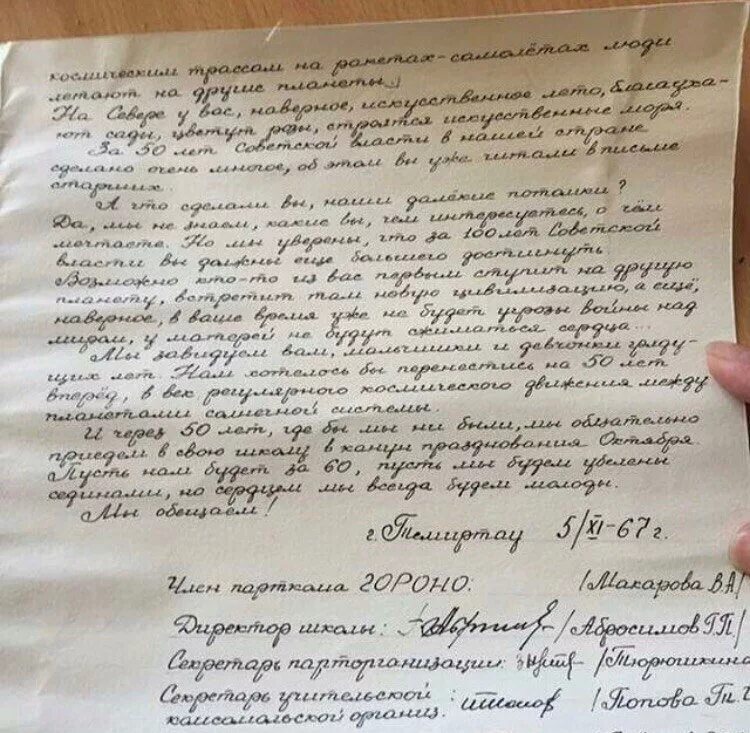 космическим трассам на ракетах-самолётах люди
летают на другие планеты.
На Севере у вас, наверное, искусственное лето, благауха-
ют сады, цветут розы, строятся искусственные моря.
За 50 лет Советской власти в нашей стране
сделано очень многое, об этом вы уже читали в письме
старших.
А что сделали вы, наши далёкие потомки?
Да, мы не знаем, какие вы, чем интересуетесь, о чём
мечтаете. Но мы уверены, что за 100 лет Советской
власти вы должны еще большего достигнуть.
Возможно кто-то из вас первым ступит на другую
планету, встретит там новую цивилизацию, а ещё,
наверное, в ваше время уже не будет угрозы войны над
миром, у матерей не будут сжиматься сердца...
Мы завидуем вам, мальчишки и девчонки гряду-
щих лет. Нам хотелось бы перенестись на 50 лет
вперёд, в век регулярного космического движения между
планетами солнечной системы.
И через 50 лет, где бы мы ни были, мы обязательно
приедем в свою школу в канун празднования Октября.
Пусть нам будет за 60, пусть мы будем убелены
сединами, но сердцем мы всегда будем молоды.
Мы обещаем!
г. Темиртау 5/XI-67 г.
Член парткома ГОРОНО: /Макарова В.А/
Директор школы: /Абросимов Г.П/
Секретарь парторганизации: /Тюрюшкина
Секретарь учительской
комсомольской организ.: /Попова Гл.